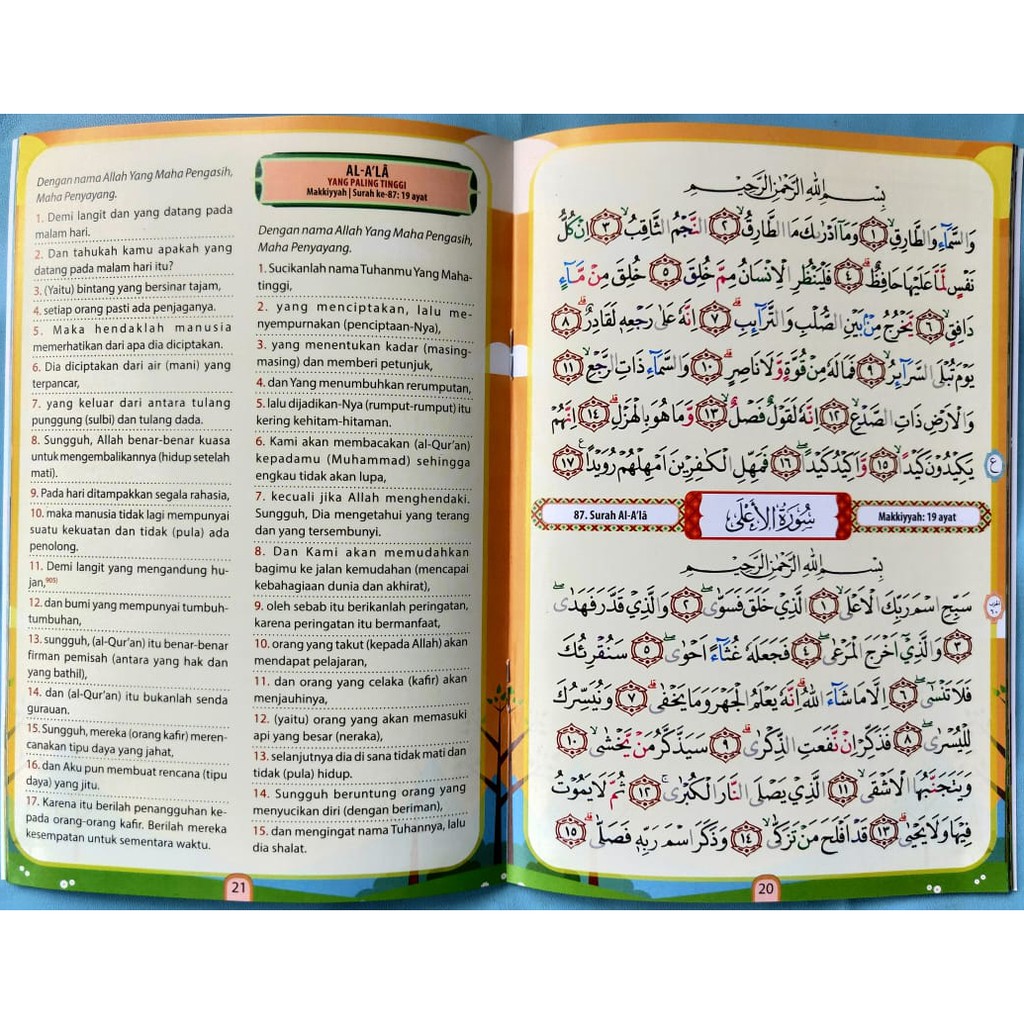 Dengan nama Allah Yang Maha Pengasih,
Maha Penyayang.
1. Demi langit dan yang datang pada
malam hari.
2. Dan tahukah kamu apakah yang
datang pada malam hari itu?
3. (Yaitu) bintang yang bersinar tajam,
4. setiap orang pasti ada penjaganya.
5. Maka hendaklah manusia
memerhatikan dari apa dia diciptakan.
6. Dia diciptakan dari air (mani) yang
terpancar,
7. yang keluar dari antara tulang
punggung (sulbi) dan tulang dada.
8. Sungguh, Allah benar-benar kuasa
untuk mengembalikannya (hidup setelah
mati).
9. Pada hari ditampakkan segala rahasia,
10. maka manusia tidak lagi mempunyai
suatu kekuatan dan tidak (pula) ada
penolong.
11. Demi langit yang mengandung hu-
jan,905)
12. dan bumi yang mempunyai tumbuh-
tumbuhan,
13. sungguh, (al-Qur'an) itu benar-benar
firman pemisah (antara yang hak dan
yang bathil),
14. dan (al-Qur'an) itu bukanlah senda
gurauan.
15. Sungguh, mereka (orang kafir) meren-
canakan tipu daya yang jahat,
16. dan Aku pun membuat rencana (tipu
daya) yang jitu.
17. Karena itu berilah penangguhan ke-
pada orang-orang kafir. Berilah mereka
kesempatan untuk sementara waktu.
AL-A'LÂ
YANG PALING TINGGI
Makkiyyah | Surah ke-87: 19 ayat
Dengan nama Allah Yang Maha Pengasih,
Maha Penyayang.
1. Sucikanlah nama Tuhanmu Yang Maha-
tinggi,
2. yang menciptakan, lalu me-
nyempurnakan (penciptaan-Nya),
3. yang menentukan kadar (masing-
masing) dan memberi petunjuk,
4. dan Yang menumbuhkan rerumputan,
5. lalu dijadikan-Nya (rumput-rumput) itu
kering kehitam-hitaman.
6. Kami akan membacakan (al-Qur'an)
kepadamu (Muhammad) sehingga
engkau tidak akan lupa,
7. kecuali jika Allah menghendaki.
Sungguh, Dia mengetahui yang terang
dan yang tersembunyi.
8. Dan Kami akan memudahkan
bagimu ke jalan kemudahan (mencapai
kebahagiaan dunia dan akhirat),
9. oleh sebab itu berikanlah peringatan,
karena peringatan itu bermanfaat,
10. orang yang takut (kepada Allah) akan
mendapat pelajaran,
11. dan orang yang celaka (kafir) akan
menjauhinya,
12. (yaitu) orang yang akan memasuki
api yang besar (neraka),
13. selanjutnya dia di sana tidak mati dan
tidak (pula) hidup.
14. Sungguh beruntung orang yang
menyucikan diri (dengan beriman),
15. dan mengingat nama Tuhannya, lalu
dia shalat.
21
بِسْمِ اللهِ الرَّحْمٰنِ الرَّحِيْمِ
وَالسَّمَاۤءِ وَالطَّارِقِۙ ١ وَمَآ اَدْرٰىكَ مَا الطَّارِقُۙ ٢ النَّجْمُ الثَّاقِبُۙ ٣ اِنْ كُلُّ
نَفْسٍ لَّمَّا عَلَيْهَا حَافِظٌۗ ٤ فَلْيَنْظُرِ الْاِنْسَانُ مِمَّ خُلِقَ ٥ خُلِقَ مِنْ مَّاۤءٍ
دَافِقٍۙ ٦ يَّخْرُجُ مِنْۢ بَيْنِ الصُّلْبِ وَالتَّرَاۤىِٕبِۗ ٧ اِنَّهٗ عَلٰى رَجْعِهٖ لَقَادِرٌۗ ٨
يَوْمَ تُبْلَى السَّرَاۤىِٕرُۙ ٩ فَمَا لَهٗ مِنْ قُوَّةٍ وَّلَا نَاصِرٍۗ ١٠ وَالسَّمَاۤءِ ذَاتِ الرَّجْعِۙ ١١
وَالْاَرْضِ ذَاتِ الصَّدْعِۙ ١٢ اِنَّهٗ لَقَوْلٌ فَصْلٌۙ ١٣ وَّمَا هُوَ بِالْهَزْلِۗ ١٤ اِنَّهُمْ
يَكِيْدُوْنَ كَيْدًاۙ ١٥ وَّاَكِيْدُ كَيْدًاۖ ١٦ فَمَهِّلِ الْكٰفِرِيْنَ اَمْهِلْهُمْ رُوَيْدًا ࣖ ١٧
ع
87. Surah Al-A'lâ
سُوْرَةُ الْأَعْلَى
Makkiyyah: 19 ayat
بِسْمِ اللهِ الرَّحْمٰنِ الرَّحِيْمِ
سَبِّحِ اسْمَ رَبِّكَ الْاَعْلَىۙ ١ الَّذِيْ خَلَقَ فَسَوّٰىۖ ٢ وَالَّذِيْ قَدَّرَ فَهَدٰىۖ
٣ وَالَّذِيْٓ اَخْرَجَ الْمَرْعٰىۖ ٤ فَجَعَلَهٗ غُثَاۤءً اَحْوٰىۖ ٥ سَنُقْرِئُكَ
فَلَا تَنْسٰىٓۖ ٦ اِلَّا مَا شَاۤءَ اللهُ اِنَّهٗ يَعْلَمُ الْجَهْرَ وَمَا يَخْفٰىۗ ٧ وَنُيَسِّرُكَ
لِلْيُسْرٰىۖ ٨ فَذَكِّرْ اِنْ نَّفَعَتِ الذِّكْرٰىۗ ٩ سَيَذَّكَّرُ مَنْ يَّخْشٰىۙ ١٠
وَيَتَجَنَّبُهَا الْاَشْقَىۙ ١١ الَّذِيْ يَصْلَى النَّارَ الْكُبْرٰىۚ ١٢ ثُمَّ لَا يَمُوْتُ
فِيْهَا وَلَا يَحْيٰىۗ ١٣ قَدْ اَفْلَحَ مَنْ تَزَكّٰىۙ ١٤ وَذَكَرَ اسْمَ رَبِّهٖ فَصَلّٰىۗ ١٥
20